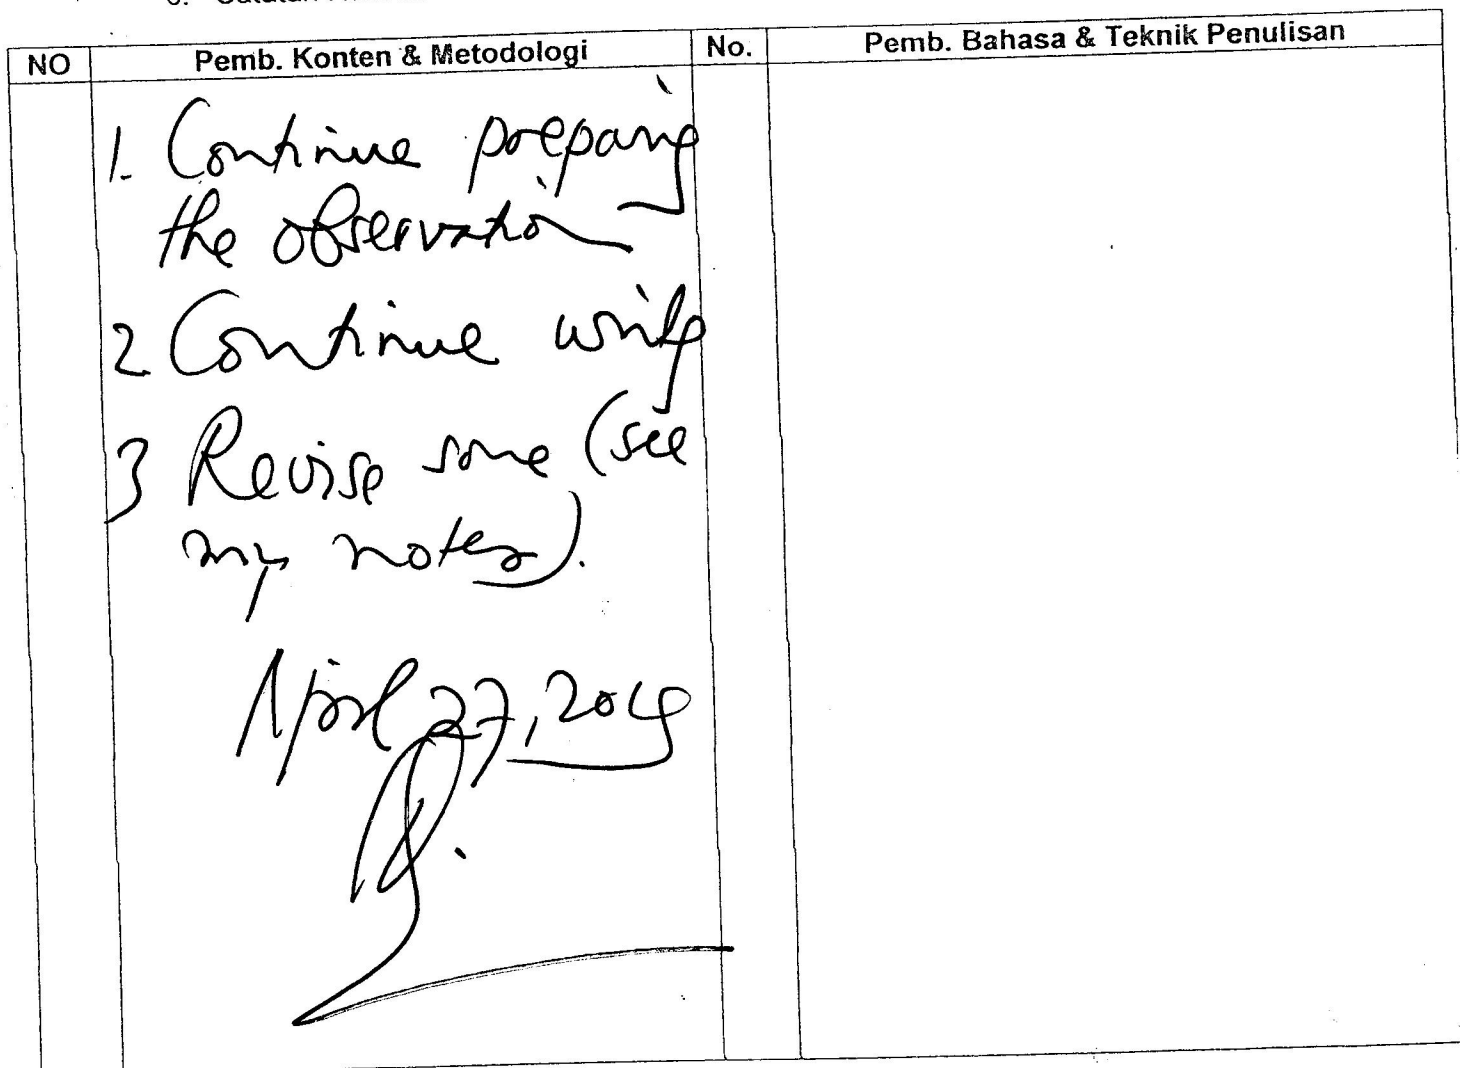 NO Pemb. Konten & Metodologi No. Pemb. Bahasa & Teknik Penulisan
1. Continue preparing
the observation
2 Continue writing
3 Revise some (see
my notes).
April 27, 2019